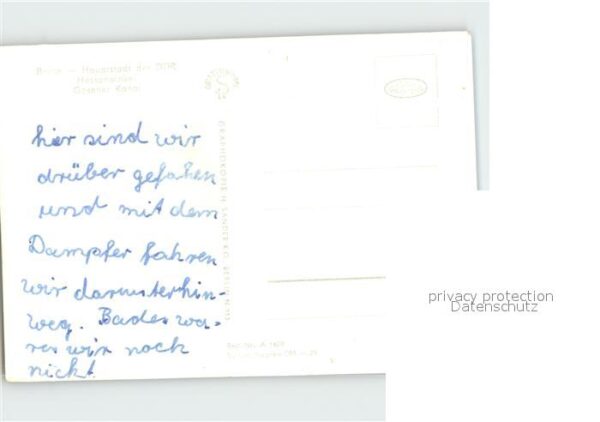 Berlin — Hauptstadt der DDR
Hessenwinkel
Gosener Kanal
hier sind wir
drüber gefahen
und mit dem
Dampfer fahren
wir darunterhin-
weg. Baden wa-
ren wir noch
nicht!
privacy protection
Datenschutz